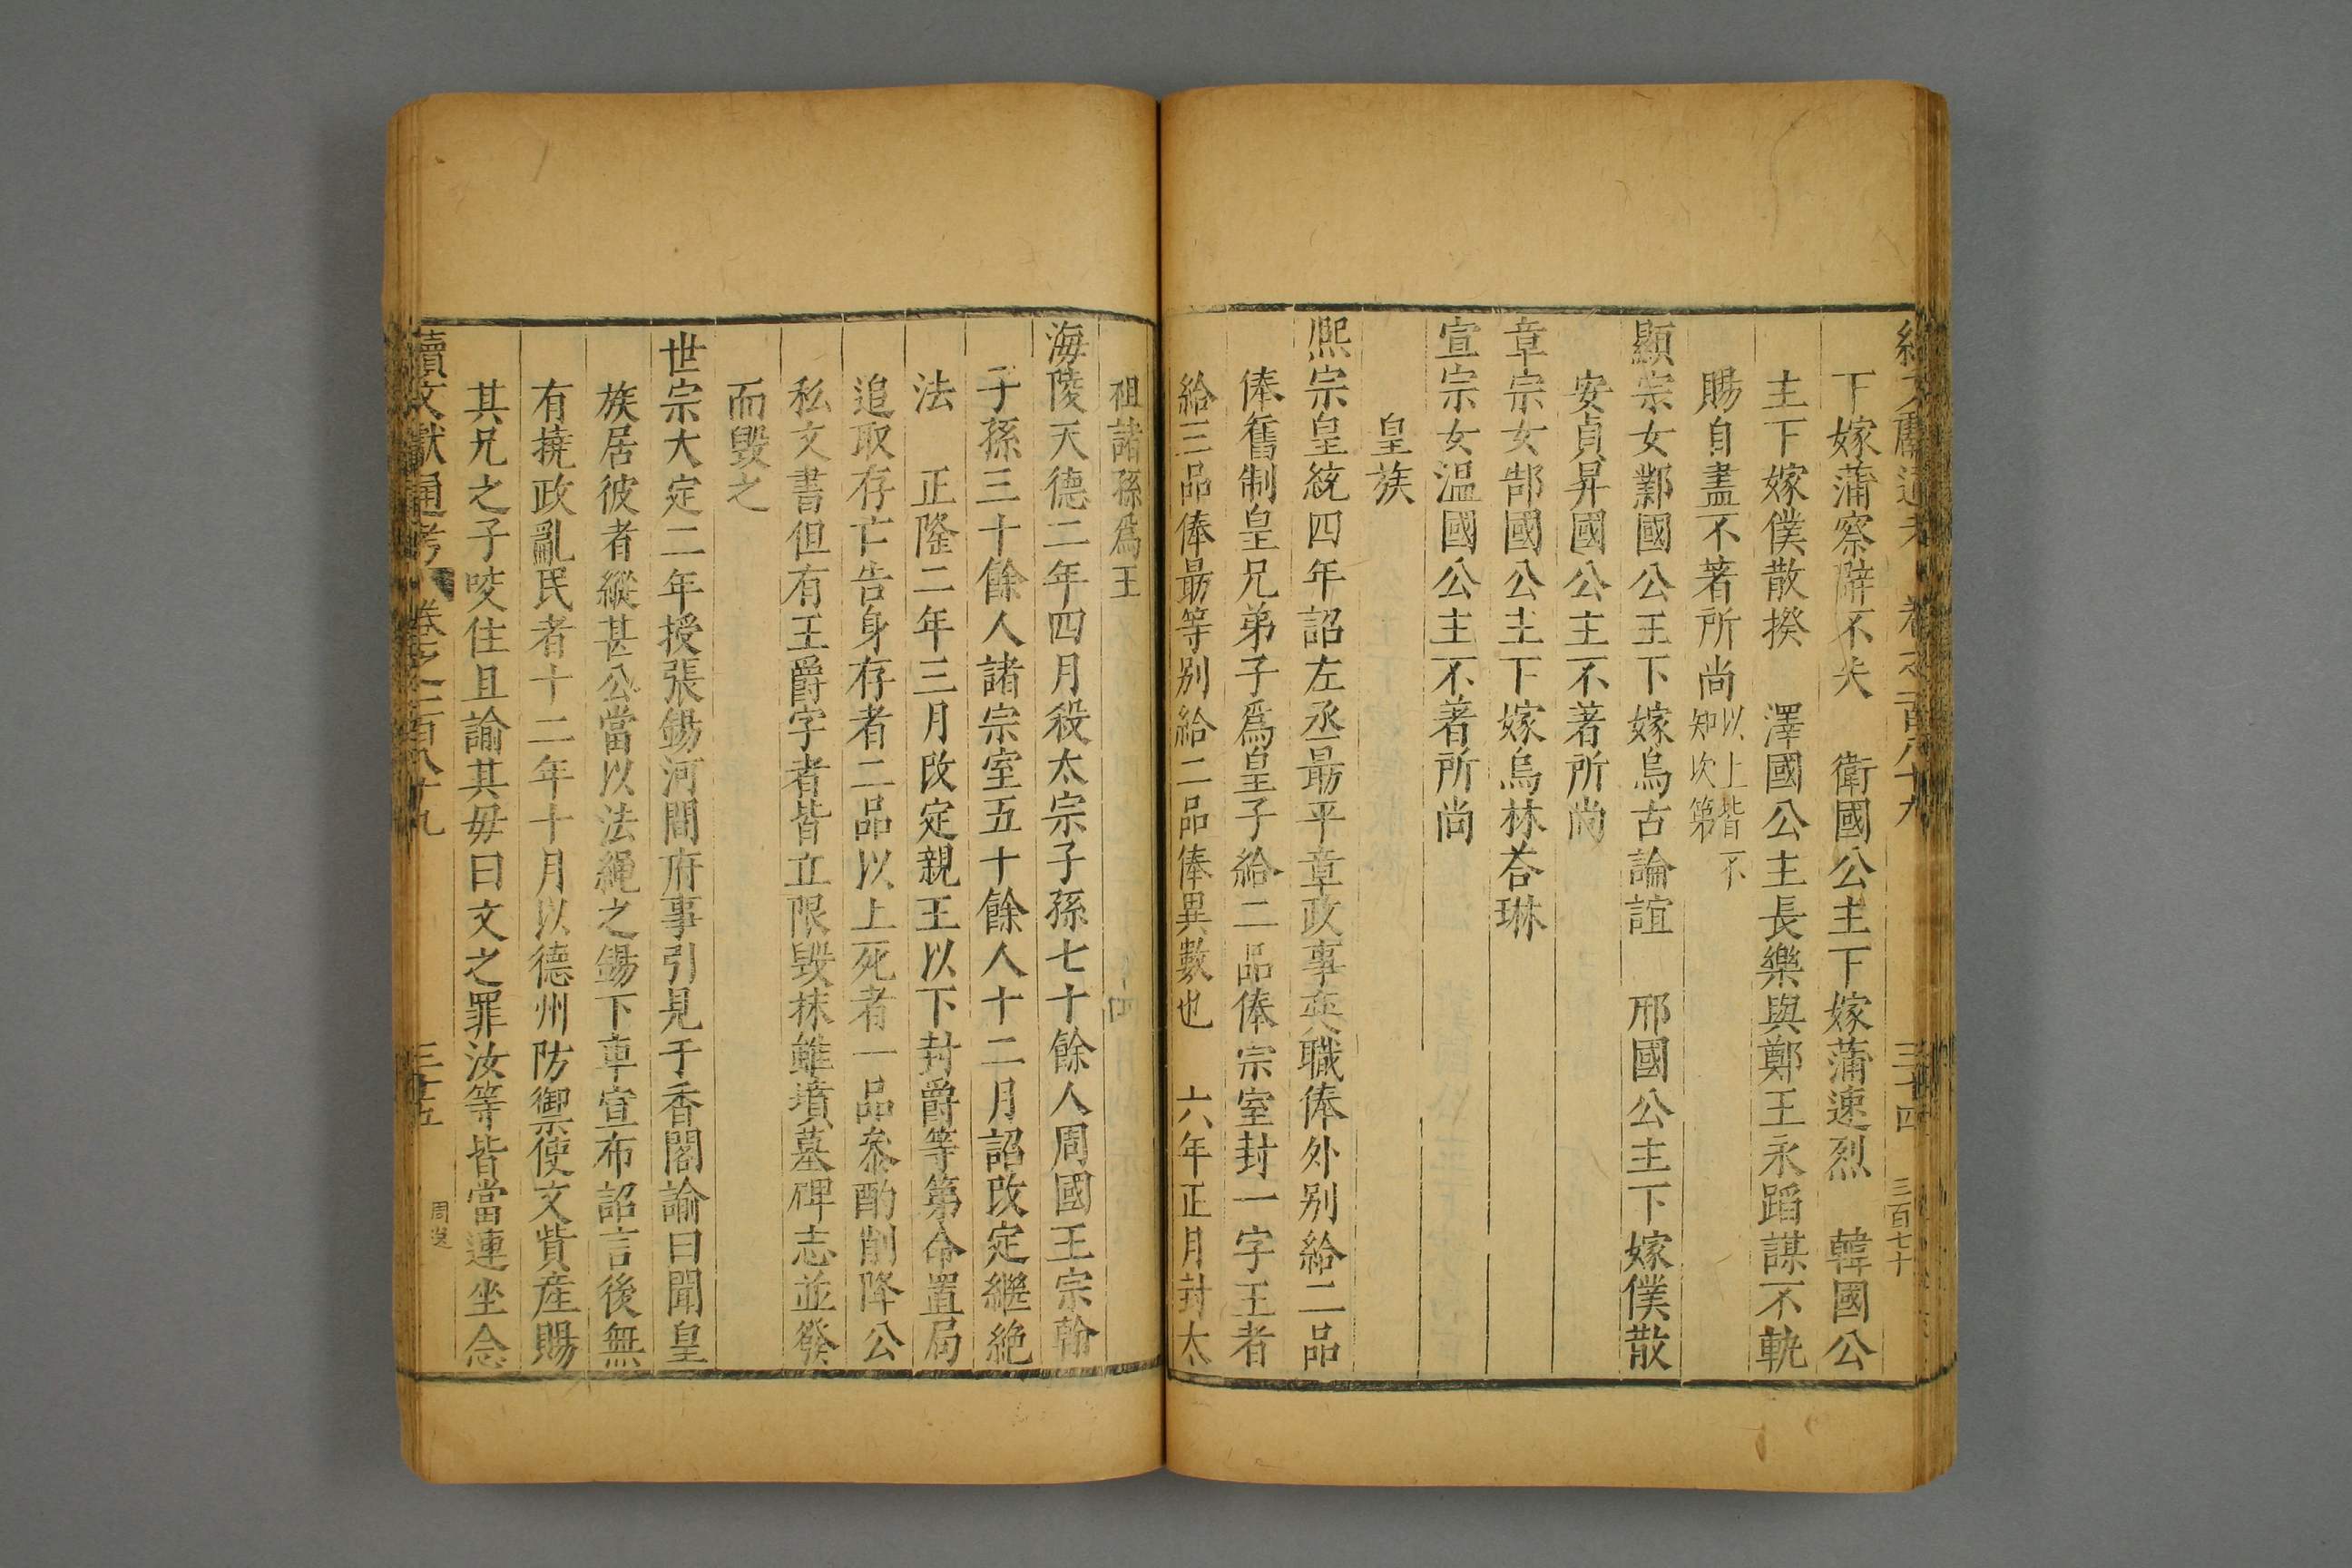 續文獻通考 卷之二百八十九 三十四 三百七十
下嫁蒲察辭不失 衛國公主下嫁蒲速烈 韓國公
主下嫁僕散揆 澤國公主長樂與鄭王永蹈謀不軌
賜自盡不著所尚以上皆不
知次第
顯宗女鄴國公主下嫁烏古論誼 邢國公主下嫁僕散
安貞昇國公主不著所尚
章宗女郜國公主下嫁烏林荅琳
宣宗女溫國公主不著所尚
皇族
熙宗皇統四年詔左丞最平章政事奕職俸外別給二品
俸舊制皇兄弟子爲皇子給二品俸宗室封一字王者
給三品俸最等别給二品俸異數也 六年正月封太
祖諸孫爲王
海陵天德二年四月殺太宗子孫七十餘人周國王宗翰
子孫三十餘人諸宗室五十餘人十二月詔改定繼絶
法 正隆二年三月改定親王以下封爵等第命置局
追取存亡告身存者二品以上死者一品叅酌削降公
私文書但有王爵字者皆立限毁抹雖墳墓碑志並發
而毁之
世宗大定二年授張錫河間府事引見于香閣諭曰聞皇
族居彼者縱甚公當以法繩之錫下車宣布詔言後無
有撓政亂民者十二年十月以德州防禦使文貲産賜
其兄之子咬住且諭其毋曰文之罪汝等皆當連坐念
續文獻通考 卷之二百八十九 三十五